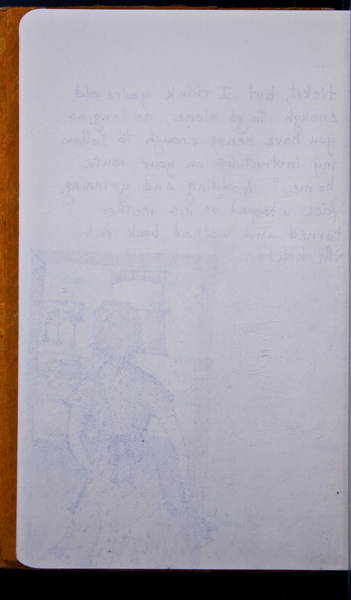 ticket, but I think you're old
enough to go alone, as long as
you have sense enough to follow
my instructions on your route
home." Nodding and grinning,
Jack watched as his mother
turned and walked back into
the kitchen